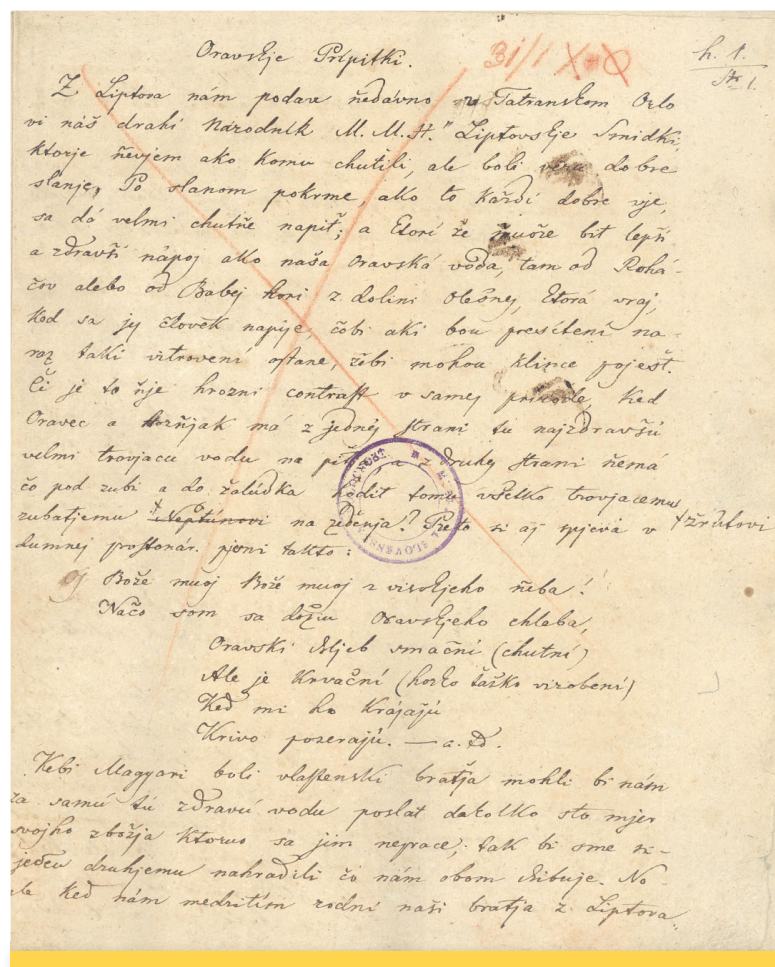 Oravskje Prípitki.
31/1
h. 1.
Str 1.
Z Liptova nám podave ňedávno v Tatranskom Orlo
vi náš drahí Národník M. M. H." Liptovskje Smidki,
ktorje ňevjem ako komu chutili, ale boli veru dobre
slanje, Po slanom pokrme, ako to každí dobre vje,
sa dá velmi chutňe napiť; a ktorí že muože biť lepší
a zdravší nápoj ako naša Oravská voda, tam od Rohá-
čov alebo od Babej hori z dolini Olešnej, ktorá vraj,
ked sa jej človek napije, čobi aki bou presítení na-
raz taki vitrovení ostane, žebi mohou klince pojesť.
Či je to ňje hrozni contrast v samej prírode, ked
Oravec a má z jednej strani tú najzdravšú
velmi trovjacu vodu na piť a z druhej strani ňemá
čo pod zubi a do žalúdka hodiť tomu všetko trovjacemu
zubatjemu Neptúnovi na zedenja? Preto si aj spjevá v žrútovi
dumnej prostonár. pjesni takto:
Bože muoj Bože muoj z visokjeho ňeba!
Načo som sa dožiu Oravskjeho chleba,
Oravski chljeb smační (chutní)
Ale je krvační (horko ťažko virobení)
Keď mi ho krájajú
Krivo pozerajú. — a. ťd.
Kebi Magyari boli vlastenski bratja mohli bi nám
za samú tú zdravú vodu poslať dakolko sto mjer
svojho zbožja ktoruo sa jim neprace; tak bi sme si
jeden druhjemu nahradili čo nám obom chibuje. No
ale ked nám medzitím rodní naši bratja z Liptova